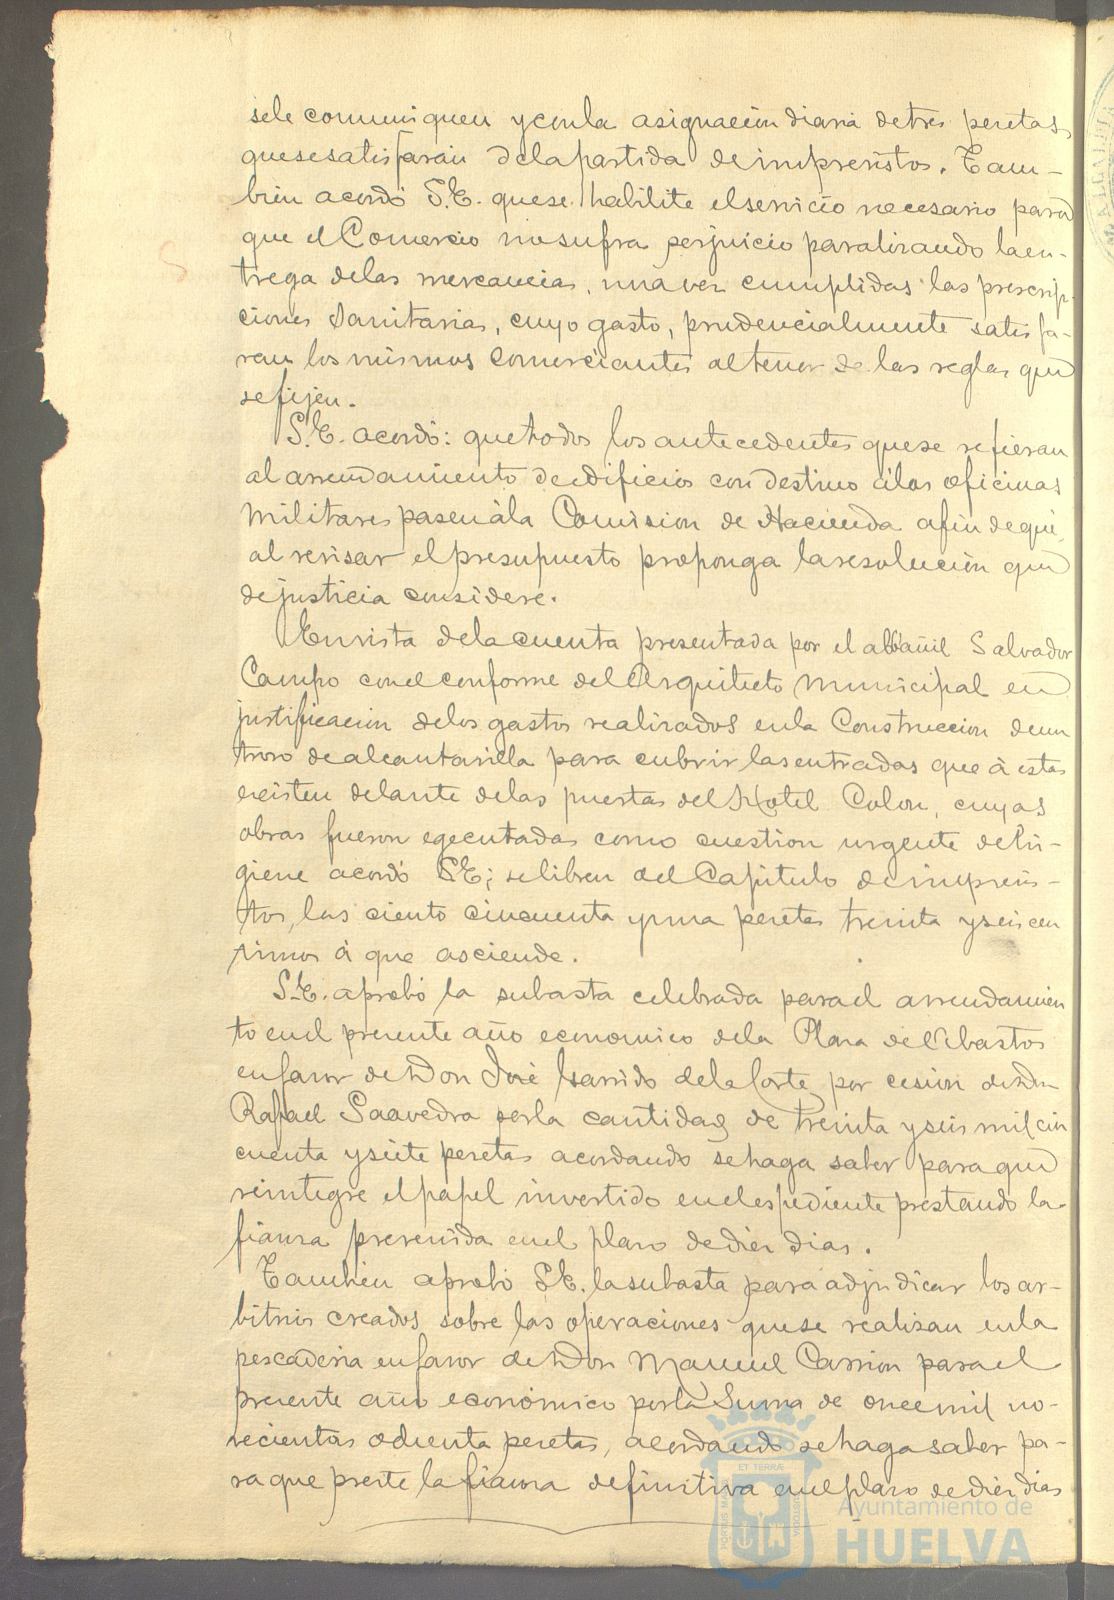 se le comuniquen y con la asignacion diaria de tres pesetas
que se satisfarán de la partida de imprevistos. Tam-
bien acordó S.E. que se habilite el servicio necesario para
que el Comercio no sufra perjuicio paralizando la en-
trega de las mercancias, una vez cumplidas las prescrip-
ciones Sanitarias, cuyo gasto, prudencialmente satisfa-
ran los mismos comerciantes al tenor de las reglas que
se fijen.
S.E. acordó: que todos los antecedentes que se refieran
al arrendamiento de edificios con destino á las oficinas
Militares pasen á la Comision de Hacienda a fin de que
al revisar el presupuesto proponga la resolucion que
de justicia considere.
En vista de la cuenta presentada por el albañil Salvador
Campo con el conforme del Arquitecto Municipal en
justificacion de los gastos realizados en la Construccion de un
trozo de alcantarilla para cubrir las entradas que á estas
existen delante de las puertas del Hotel Colon, cuyas
obras fueron egecutadas como cuestion urgente de hi-
giene acordó S.E; se libren del Capitulo de imprevis-
tos, las ciento cincuenta y una pesetas treinta y seis cen
timos á que asciende.
S.E. aprobó la subasta celebrada para el arrendamien
to en el presente año economico de la Plaza de Abastos
en favor de Don José Garrido de la Corte por cesion de Dn
Rafael Saavedra por la cantidad de treinta y seis mil cin
cuenta y siete pesetas acordando se haga saber para que
reintegre el papel invertido en el espediente prestando la
fianza prevenida en el plazo de diez dias.
Tambien aprobó S.E. la subasta para adjudicar los ar-
bitrios creados sobre las operaciones que se realizan en la
pescaderia en favor de Don Manuel Carrion para el
presente año económico por la Suma de once mil no-
vecientas ochenta pesetas, acordando se haga saber pa-
ra que preste la fianza definitiva en el plazo de diez dias
PORTUS MARIS
ET TERRÆ
CUSTODIA
Ayuntamiento de
HUELVA